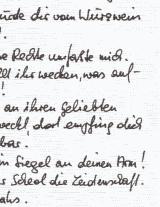 würde dir vom Würzwein
!
ne Rechte umfaßte mich.
ihr wecken, was auf-
!
an ihren Geliebten
weckt, dort empfing dich
bar.
in Siegel an deinen Arm!
Scheol die Leidenschaft.
ahs.